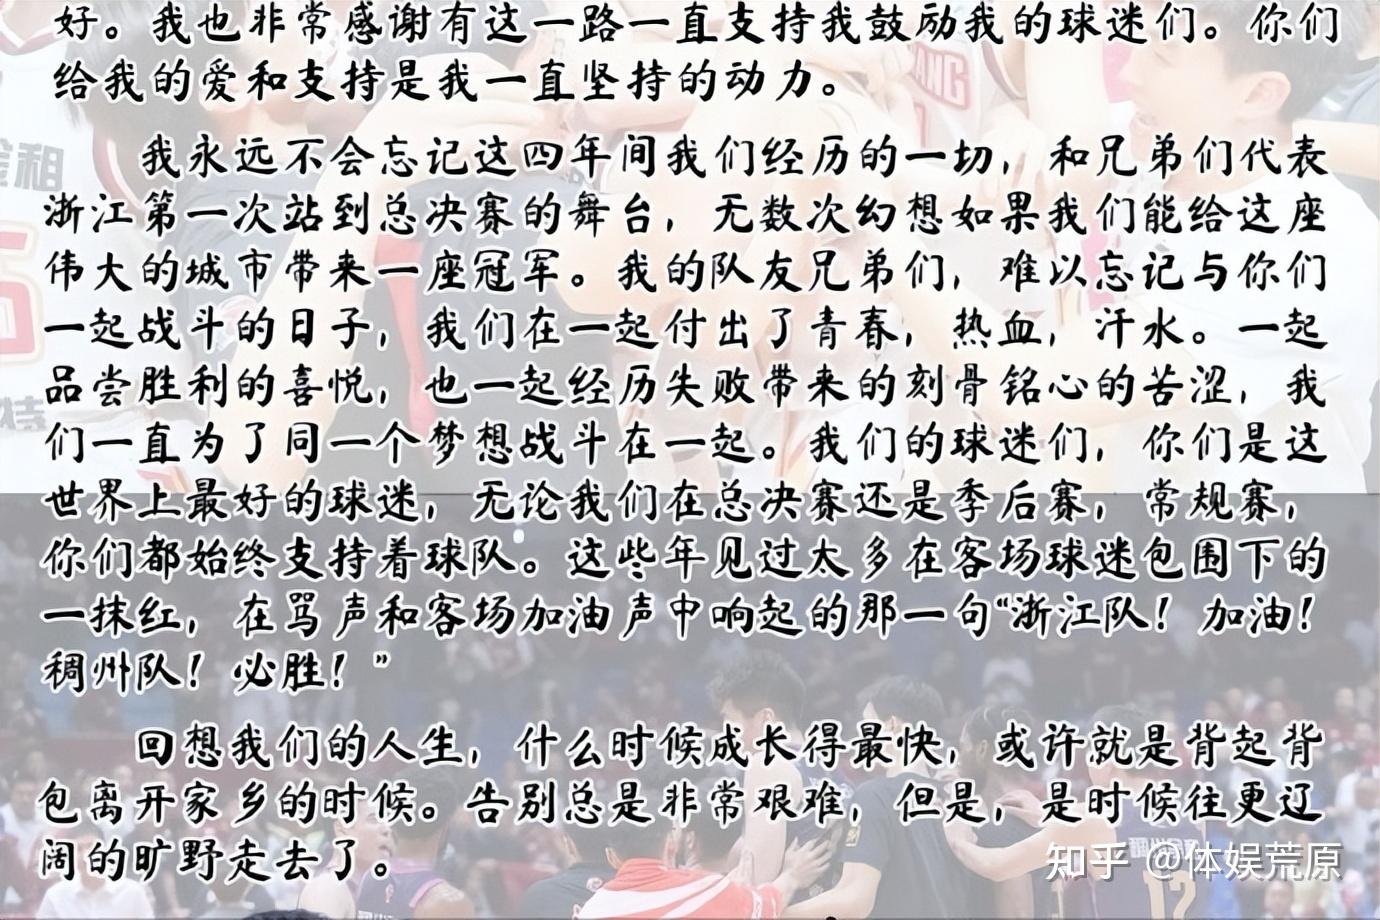 好。我也非常感谢有这一路一直支持我鼓励我的球迷们。你们
给我的爱和支持是我一直坚持的动力。
我永远不会忘记这四年间我们经历的一切，和兄弟们代表
浙江第一次站到总决赛的舞台，无数次幻想如果我们能给这座
伟大的城市带来一座冠军。我的队友兄弟们，难以忘记与你们
一起战斗的日子，我们在一起付出了青春，热血，汗水。一起
品尝胜利的喜悦，也一起经历失败带来的刻骨铭心的苦涩，我
们一直为了同一个梦想战斗在一起。我们的球迷们，你们是这
世界上最好的球迷，无论我们在总决赛还是季后赛，常规赛，
你们都始终支持着球队。这些年见过太多在客场球迷包围下的
一抹红，在骂声和客场加油声中响起的那一句“浙江队！加油！
稠州队！必胜！”
回想我们的人生，什么时候成长得最快，或许就是背起背
包离开家乡的时候。告别总是非常艰难，但是，是时候往更辽
阔的旷野走去了。
知乎 @体娱荒原